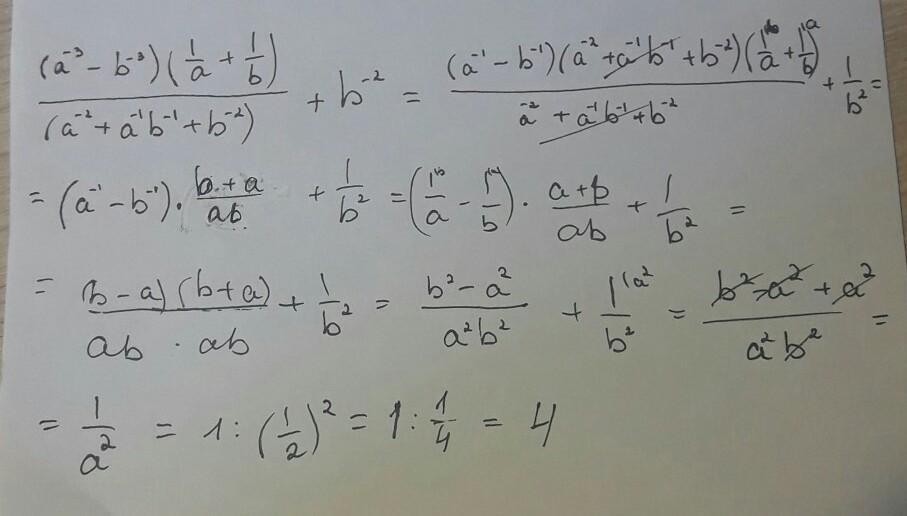 (a⁻³ − b⁻³)(1/a + 1/b) / (a⁻² + a⁻¹b⁻¹ + b⁻²) + b⁻² = (a⁻¹ − b⁻¹)(a⁻² + a⁻¹b⁻¹ + b⁻²)(1\b/a + 1/b)\a / a⁻² + a⁻¹b⁻¹ + b⁻² + 1/b² =
= (a⁻¹ − b⁻¹) · b + a/ab + 1/b² = (1\b/a − 1\a/b) · a + b/ab + 1/b² =
= (b − a)(b + a)/ab · ab + 1/b² = b² − a²/a²b² + 1\a²/b² = b² − a² + a²/a²b² =
= 1/a² = 1 : (1/2)² = 1 : 1/4 = 4